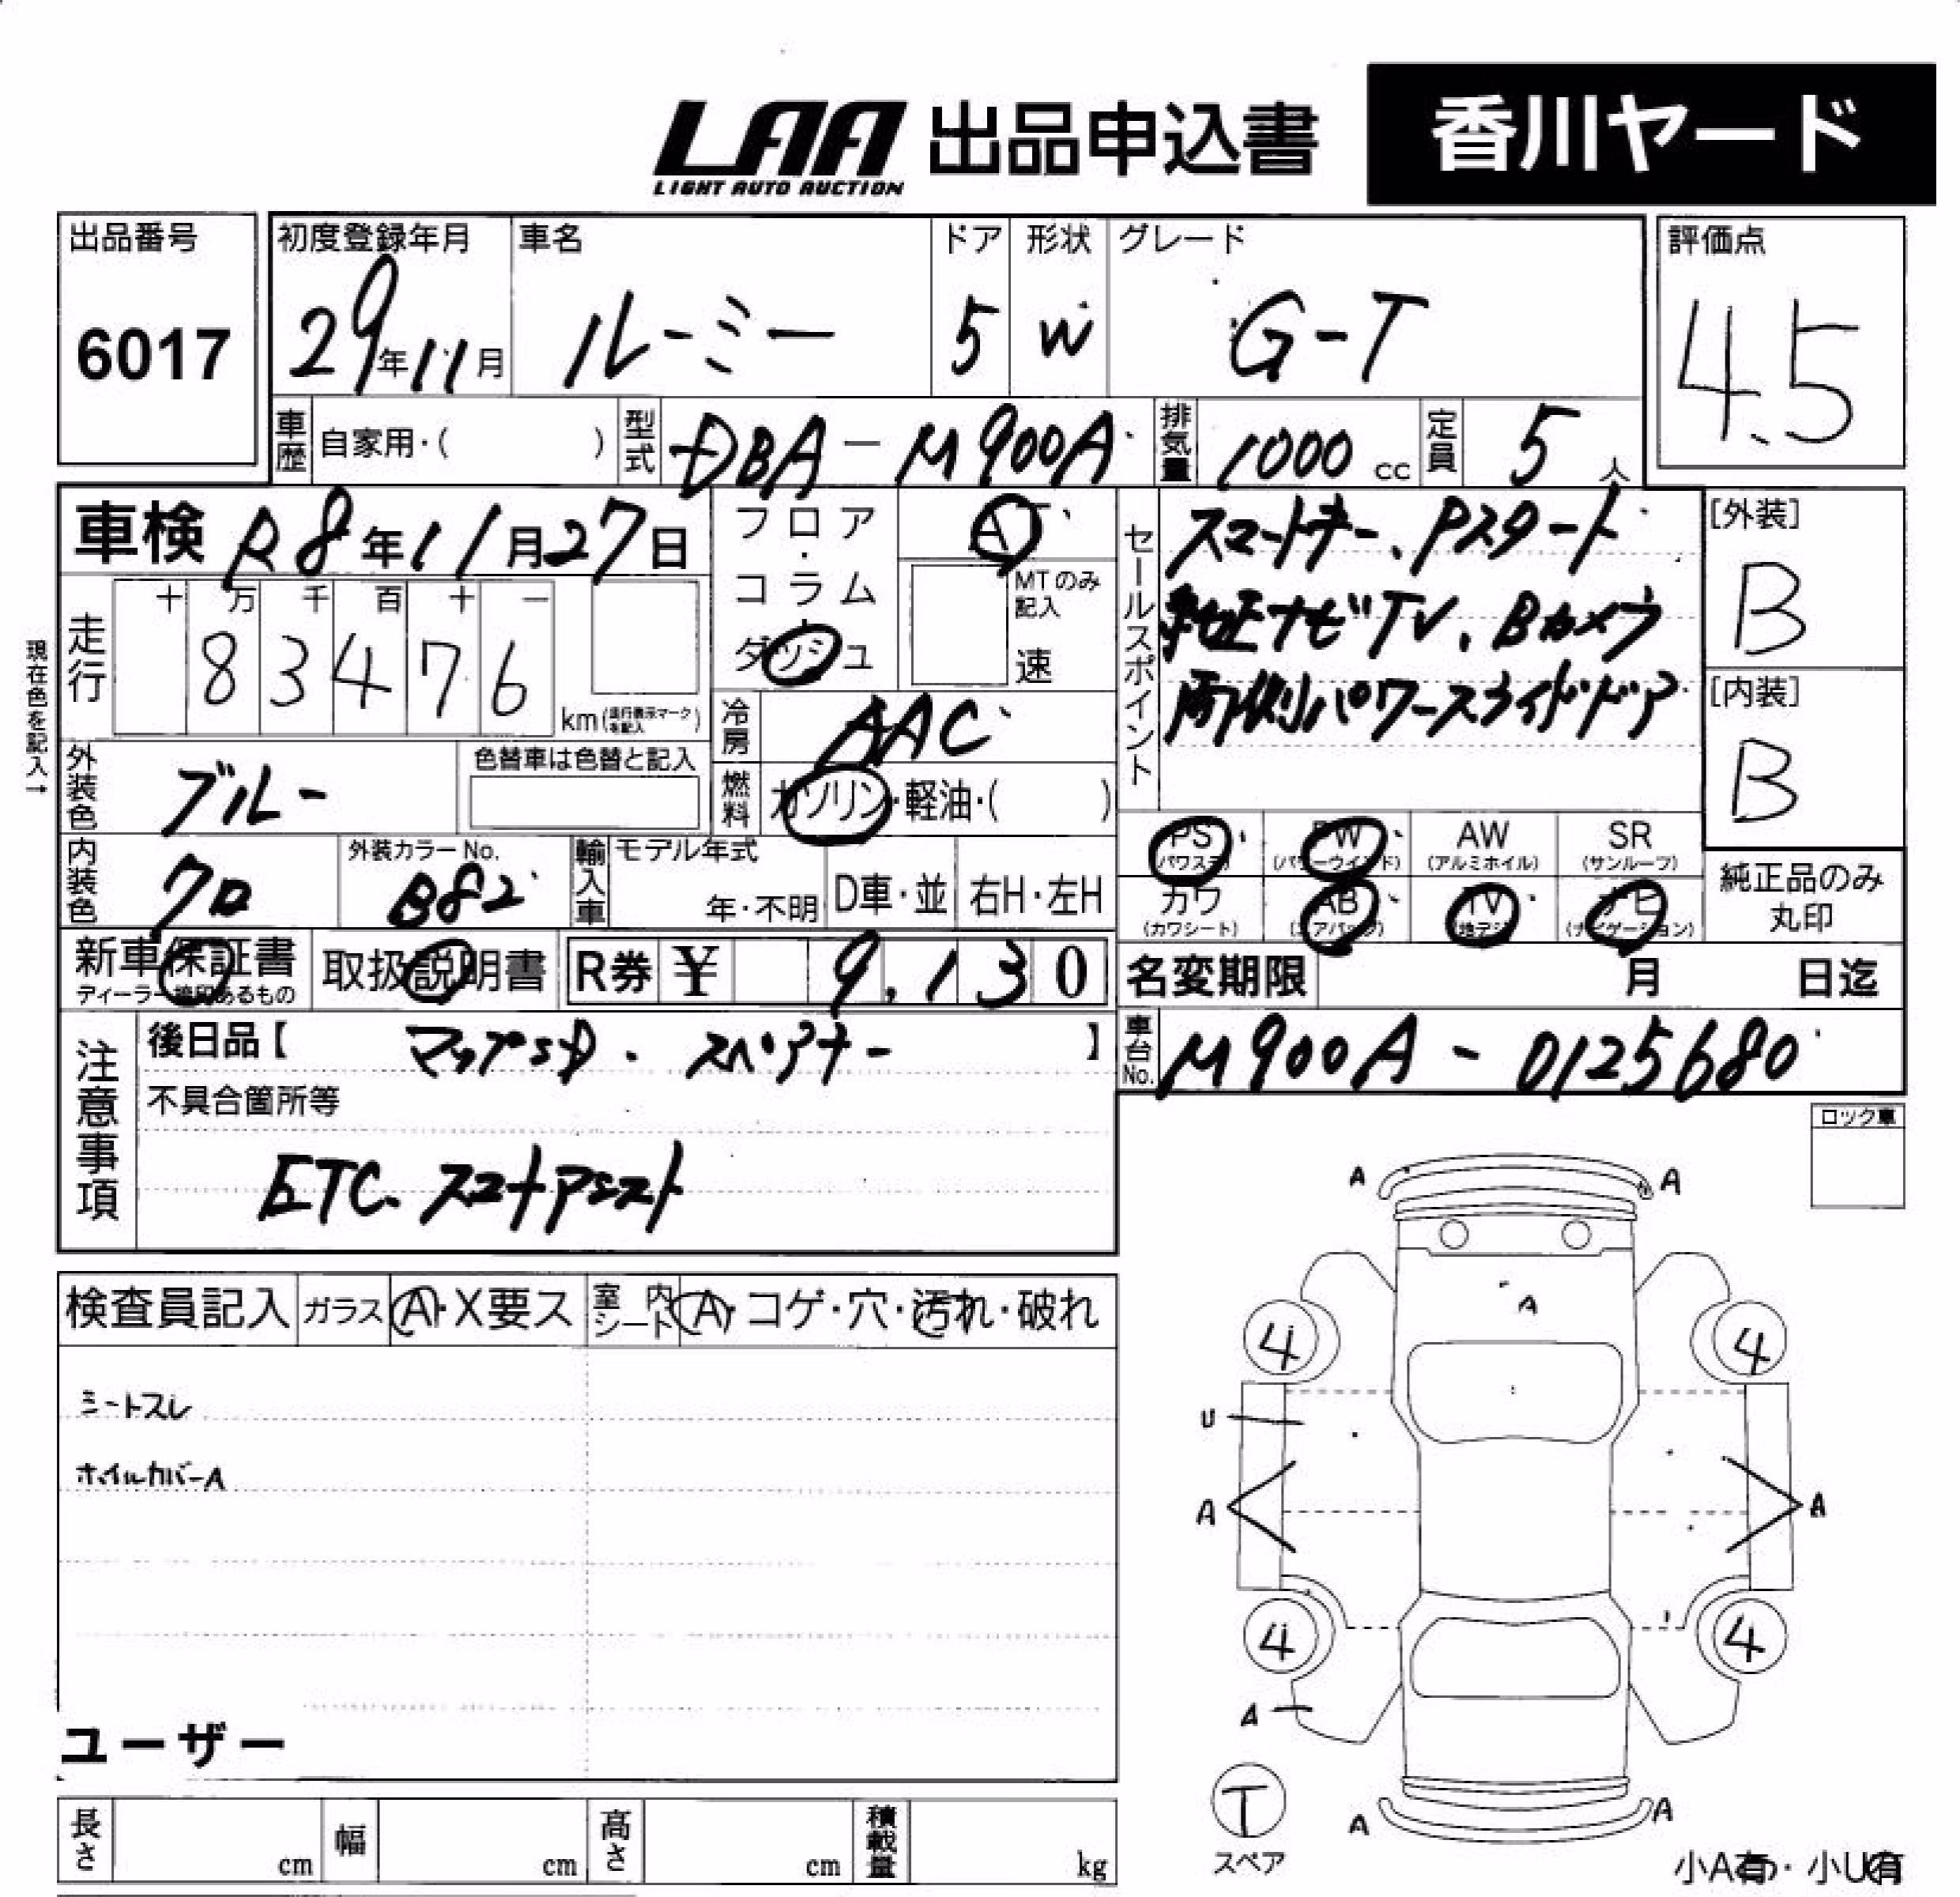 LAA 出品申込書 香川ヤード
LIGHT AUTO AUCTION
出品番号 初度登録年月 車名 ドア 形状 グレード 評価点
6017 29年11月 ルーミー 5 W G-T 4.5
車歴 自家用・( ) 型式 DBA-M900A 排気量 1000 cc 定員 5 人
車検 R8年11月27日
フロア・コラム・ダッシュ
AT
MTのみ記入
速
セールスポイント
スマートキー、Pスタート
純正ナビTV、Bカメラ
両側パワースライドドア
[外装]
B
[内装]
B
現在色を記入→
走行 十 万 千 百 十 一
83476 km(走行表示マークを記入)
冷房 AAC
外装色 ブルー 色替車は色替と記入
燃料 ガソリン・軽油・( )
内装色 クロ 外装カラーNo. B82
輸入車 モデル年式 年・不明 D車・並 右H・左H
PS (パワステ) PW (パワーウインド) AW (アルミホイル) SR (サンルーフ)
カワ (カワシート) AB (エアバッグ) TV (地デジ) ナビ (ナビゲーション)
純正品のみ丸印
新車保証書 取扱説明書 R券 ¥ 9,130
ディーラー捺印あるもの
名変期限 月 日迄
車台No. M900A-0125680
注意事項
後日品【 マップSD・スペアキー 】
不具合箇所等
ETC、スマートアシスト
ロック車
検査員記入 ガラス A・X要ス 室内シート A・コゲ・穴・汚れ・破れ
シートスレ
ホイルカバーA
ユーザー
A A
A
4 4
U
A A
4 4
A
T
スペア
A A
小A有・小U有
長さ cm 幅 cm 高さ cm 積載量 kg